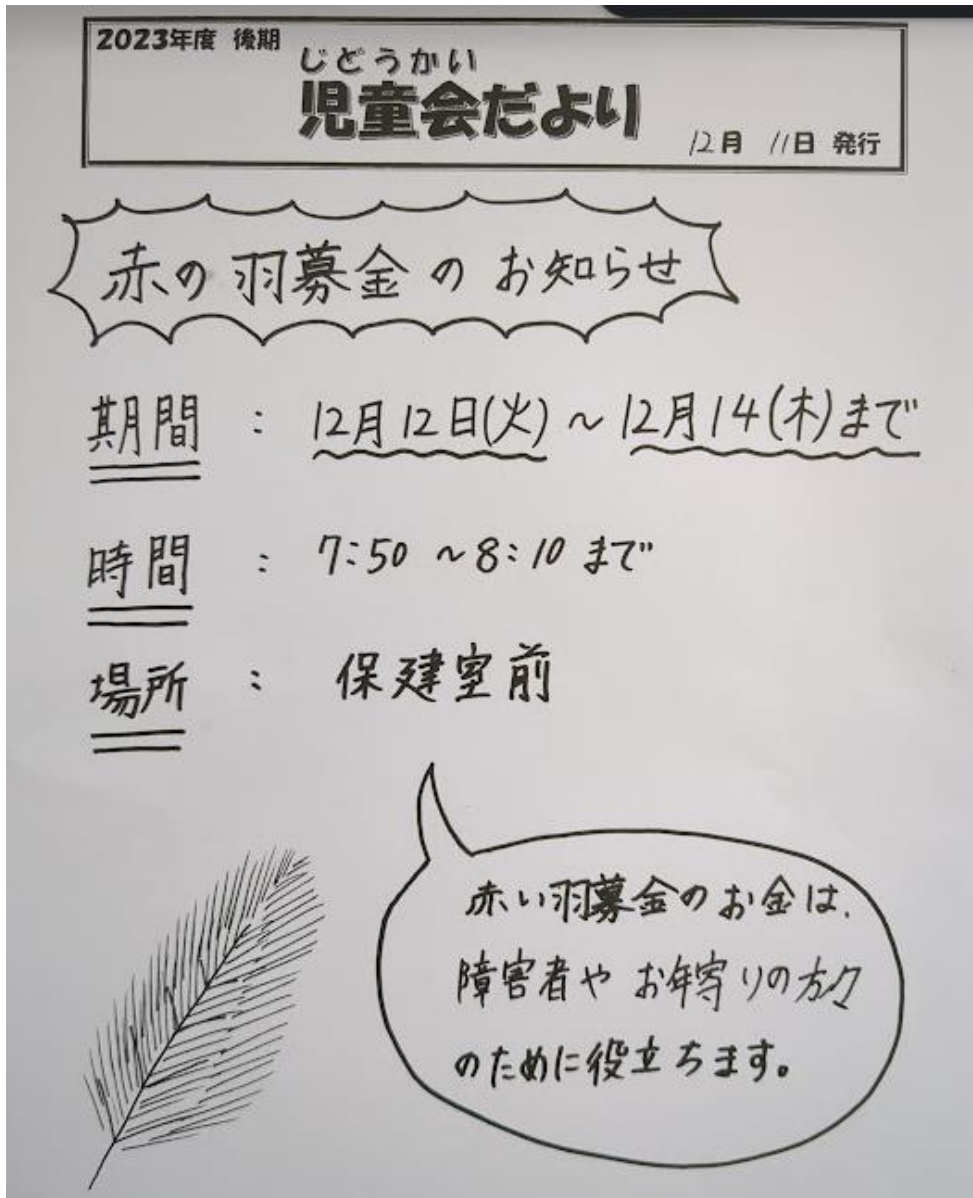 2023年度 後期
じどうかい
児童会だより
12月 11日 発行
赤の羽募金のお知らせ
期間 : 12月12日(火)~12月14(木)まで
時間 : 7:50 ~8:10まで
場所 : 保建室前
赤い羽募金のお金は、
障害者やお年寄りの方々
のために役立ちます。